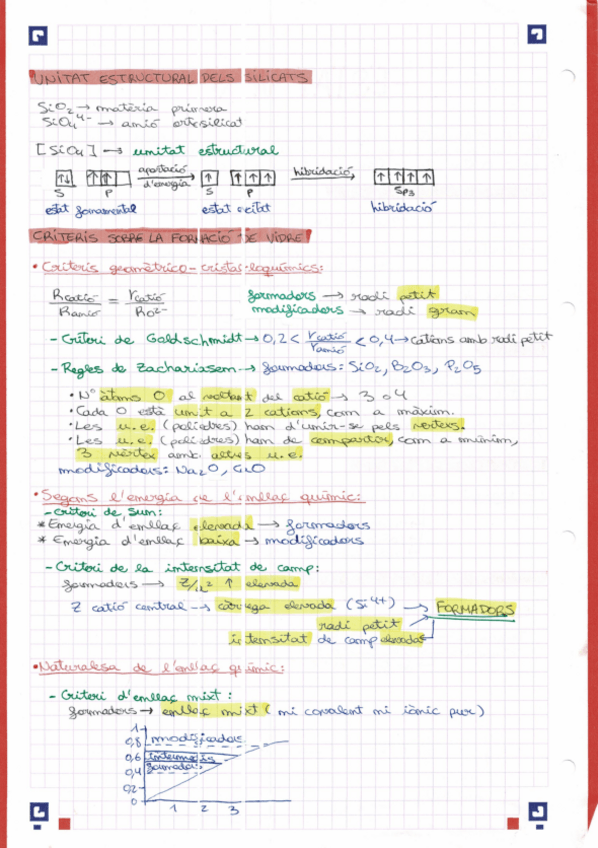 UNITAT ESTRUCTURAL DELS SILICATS
SiO₂ → matèria primera
SiO₄⁴⁻ → anió ortosilicat
[SiO₄] → unitat estructural
aportació d'energia
hibridació
S P S P SP₃
estat fonamental estat excitat hibridació
CRITERIS SOBRE LA FORMACIÓ DE VIDRE
• Criteris geomètrico-cristal·loquímics:
Rcatió / Ranió = rcatió / RO²⁻
formadors → radi petit
modificadors → radi gran
- Criteri de Goldschmidt → 0,2 < rcatió / ranió < 0,4 → cations amb radi petit
- Regles de Zachariasen → formadors: SiO₂, B₂O₃, P₂O₅
• Nº àtoms O al voltant del catió → 3 o 4
• Cada O està unit a 2 cations, com a màxim.
• Les u.e. (poliedres) han d'unir-se pels vèrtexs.
• Les u.e. (poliedres) han de compartir, com a mínim,
3 vèrtex amb altres u.e.
modificadors: Na₂O, CaO
• Segons l'energia de l'enllaç químic:
- Criteri de Sun:
* Energia d'enllaç elevada → formadors
* Energia d'enllaç baixa → modificadors
- Criteri de la intensitat de camp:
formadors → Z/a² ↑ elevada
Z catió central → càrrega elevada (Si⁴⁺) → FORMADORS
radi petit
intensitat de camp elevada
• Naturalesa de l'enllaç químic:
- Criteri d'enllaç mixt:
formadors → enllaç mixt (ni covalent ni iònic pur)
1
0,8 modificadors
0,6 intermedis
0,4 formadors
0,2
0
1 2 3